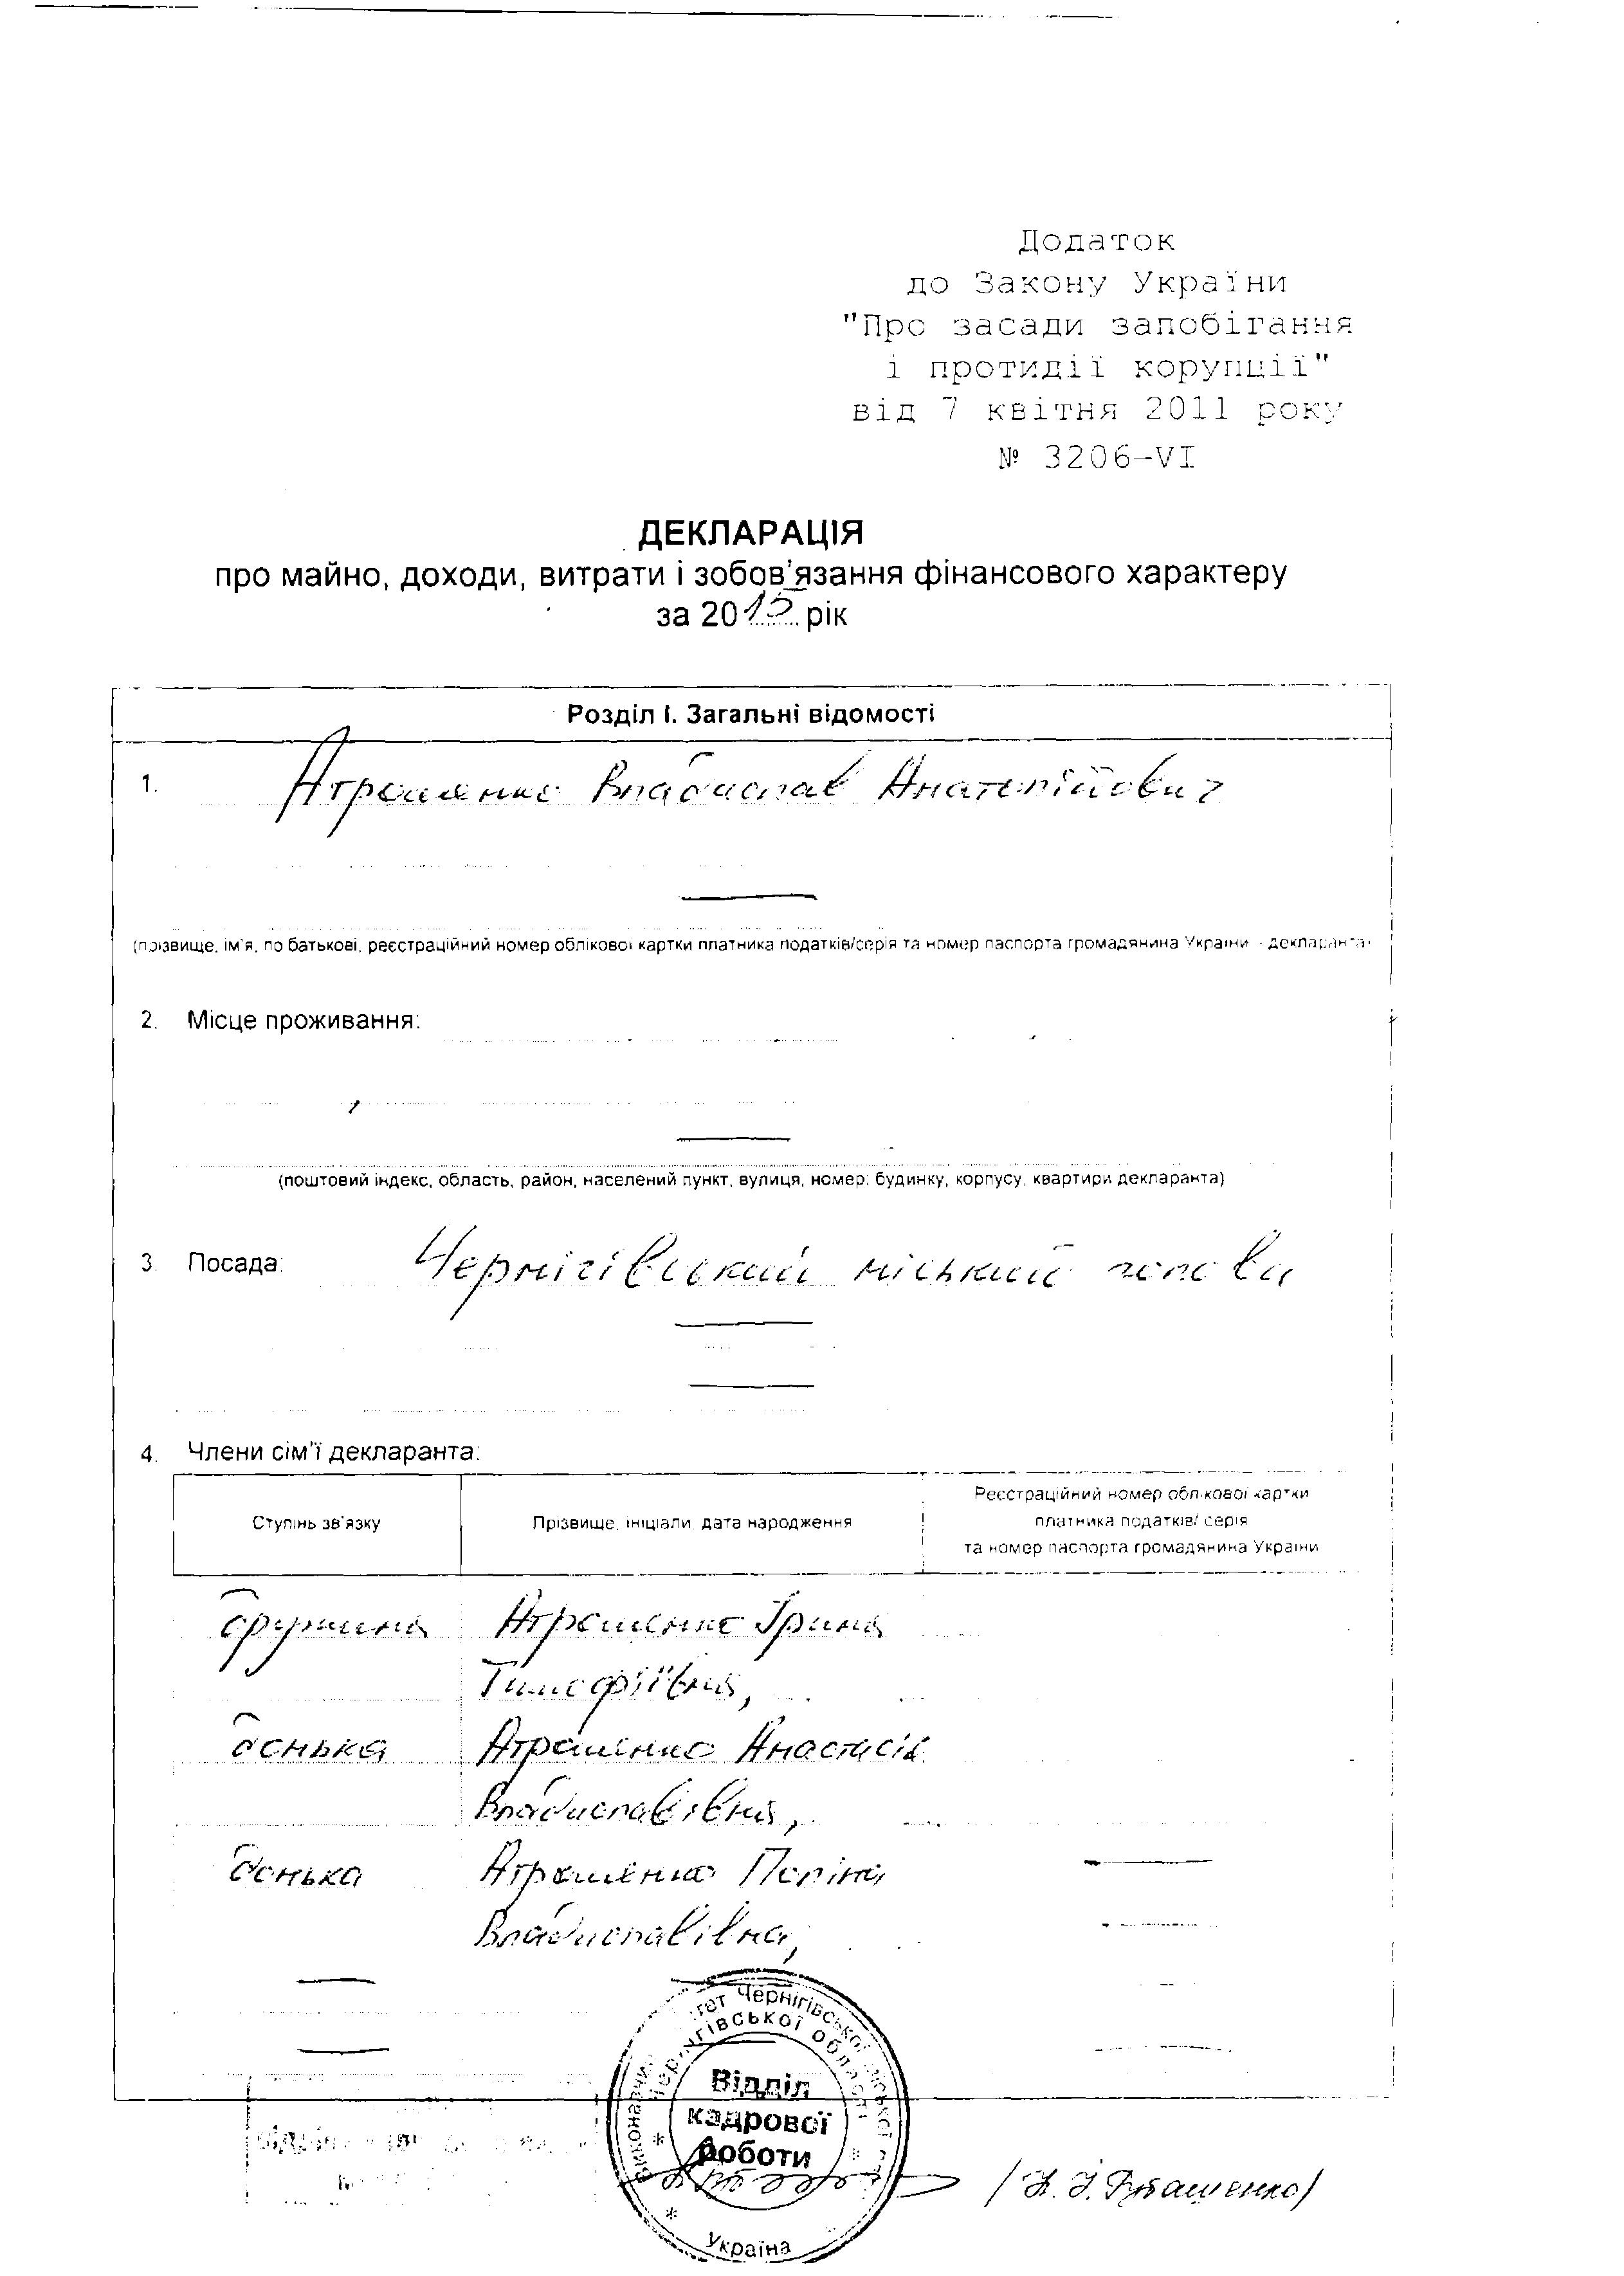 Додаток
до Закону України
"Про засади запобігання
і протидії корупції"
від 7 квітня 2011 року
№ 3206-VI
ДЕКЛАРАЦІЯ
про майно, доходи, витрати і зобов'язання фінансового характеру
за 2015 рік
Розділ I. Загальні відомості
1. Атрошенко Владислав Анатолійович
(прізвище, ім'я, по батькові, реєстраційний номер облікової картки платника податків/серія та номер паспорта громадянина України - декларанта)
2. Місце проживання:
(поштовий індекс, область, район, населений пункт, вулиця, номер: будинку, корпусу, квартири декларанта)
3. Посада: Чернігівський міський голова
4. Члени сім'ї декларанта:
Ступінь зв'язку
Прізвище, ініціали, дата народження
Реєстраційний номер облікової картки
платника податків/ серія
та номер паспорта громадянина України
дружина Атрошенко Ірина
Тимофіївна,
донька Атрошенко Анастасія
Владиславівна,
донька Атрошенко Поліна
Владиславівна,
Чернігівської міської
Чернігівської області
Відділ
кадрової
роботи
Україна